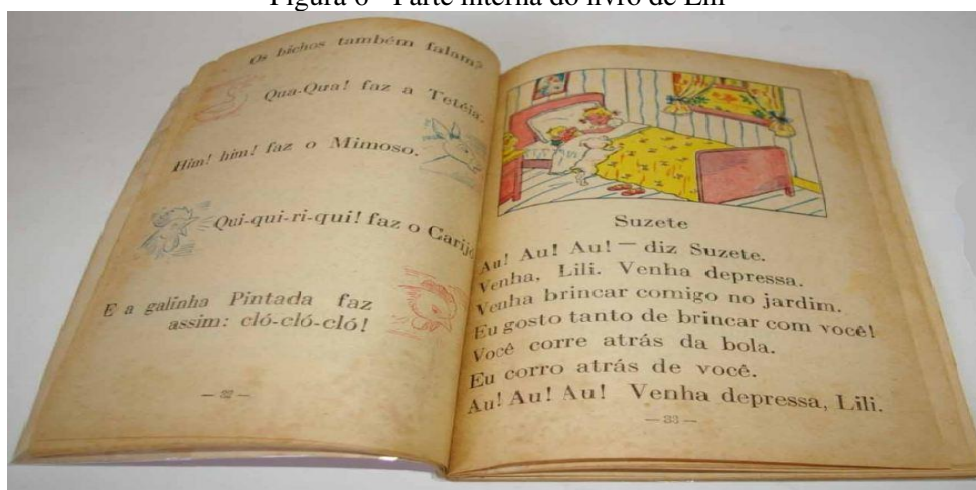 Figura 6 - Parte interna do livro de Lili
Os bichos também falam?
Qua-Qua! faz a Tetéia.
Him! him! faz o Mimoso.
Qui-qui-ri-qui! faz o Carijó
E a galinha Pintada faz
assim: cló-cló-cló!
— 32 —
Suzete
Au! Au! Au! — diz Suzete.
Venha, Lili. Venha depressa.
Venha brincar comigo no jardim.
Eu gosto tanto de brincar com você!
Você corre atrás da bola.
Eu corro atrás de você.
Au! Au! Au! Venha depressa, Lili.
— 33 —